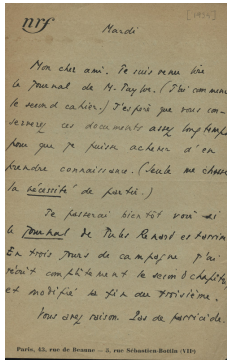 nrf
[1925]
Mardi
Mon cher ami. Je suis venu lire
le Journal de M. Taylor. (J'ai commencé
le second cahier.) J'espère que vous con-
serverez ces documents assez longtemps
pour que je puisse achever d'en
prendre connaissance. (Seule me chasse
la nécessité de partir.)
Je passerai bientôt voir si
le Journal de Jules Renard est
En trois jours de campagne j'ai
récrit complètement le second chapitre,
et modifié la fin du troisième.
Vous avez raison. Pas de parricide.
Paris, 43, rue de Beaune — 5, rue Sébastien-Bottin (VIIe)